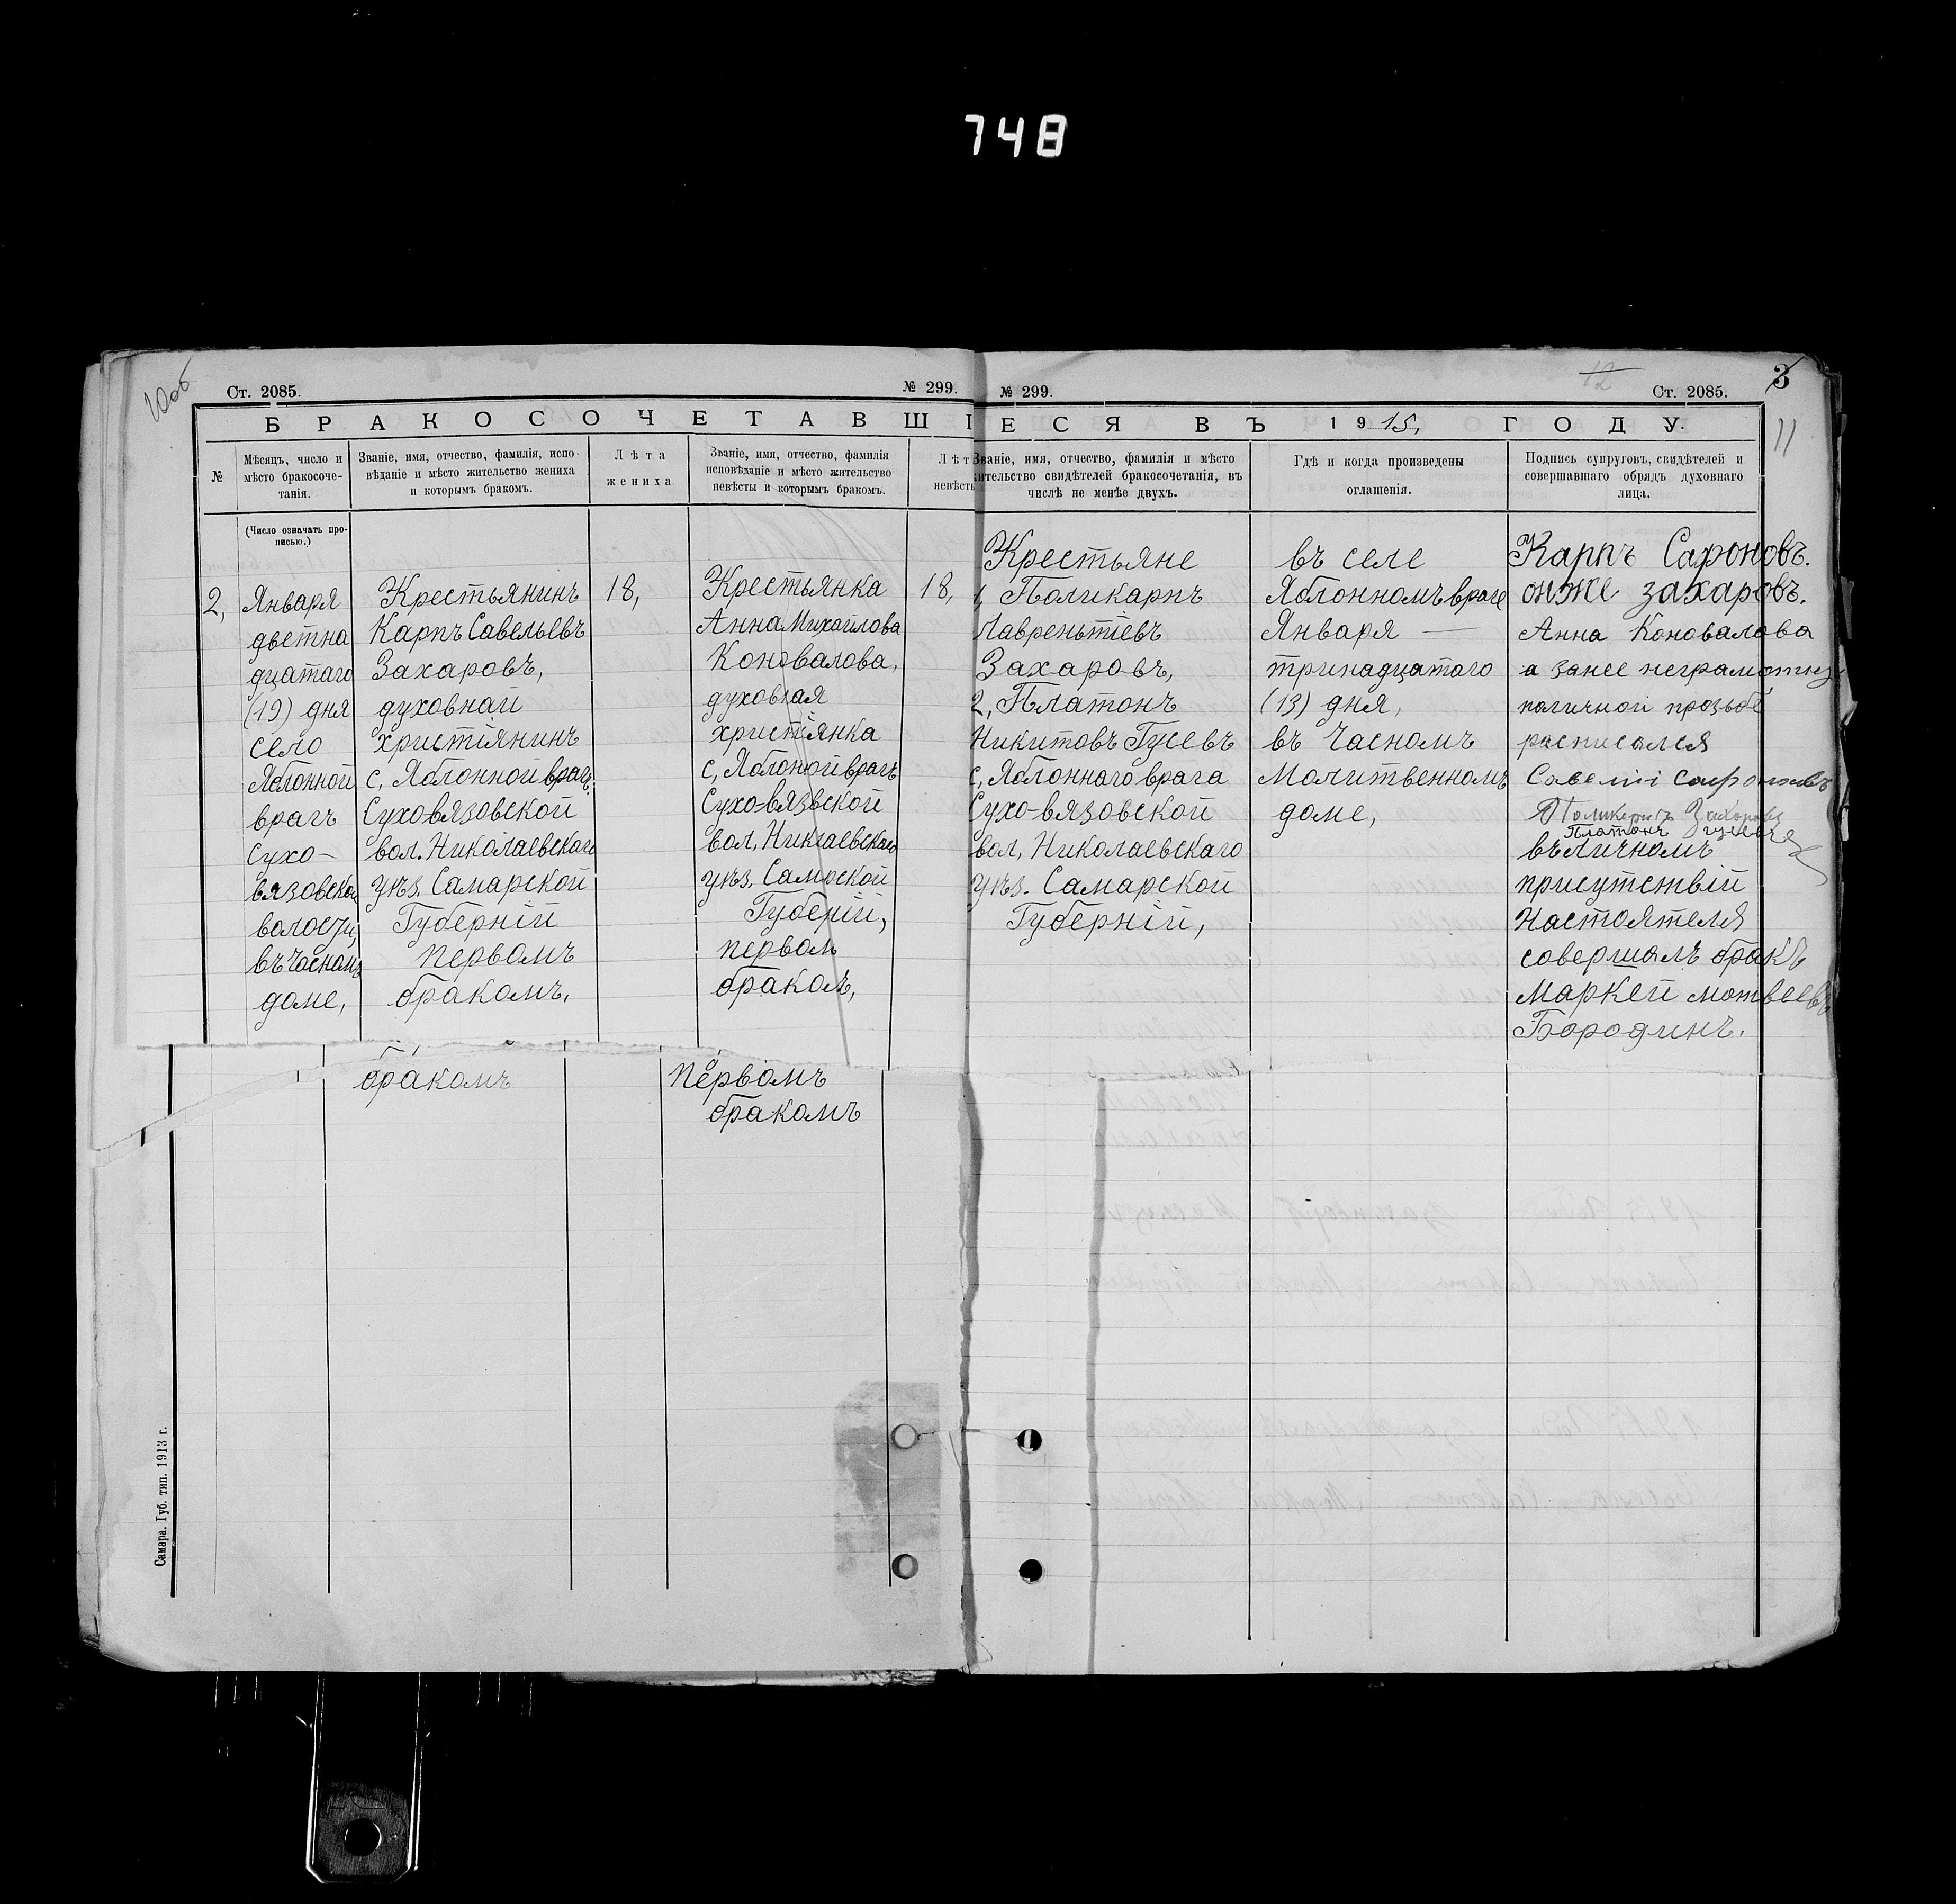 748
10об
Ст. 2085.
№ 299.
№ 299.
12
Ст. 2085.
3
11
БРАКОСОЧЕТАВШІЕСЯ ВЪ 1915, ГОДУ.
№
Мѣсяцъ, число и
мѣсто бракосоче-
танія.
(Число означать про-
писью.)
Званіе, имя, отчество, фамилія, испо-
вѣданіе и мѣсто жительство жениха
и которымъ бракомъ.
Лѣта
жениха
Званіе, имя, отчество, фамилія
исповѣданіе и мѣсто жительство
невѣсты и которымъ бракомъ.
Лѣт
невѣсты
Званіе, имя, отчество, фамилія и мѣсто
жительство свидѣтелей бракосочетанія, въ
числѣ не менѣе двухъ.
Гдѣ и когда произведены
оглашенія.
Подпись супруговъ, свидѣтелей и
совершавшаго обрядъ духовнаго
лица.
2,
Января
дветна
дцатаго
(19) дня
село
Яблонной
врагъ
Сухо-
вязовской
волости,
въ часномъ
доме,
Крестьянинъ
Карпъ Савельевъ
Захаровъ,
духовнай
христіянинъ
с, Яблонной врагъ.
Суховязовской
вол. Николаевскаго
уѣз. Самарской
Губерній
первомъ
бракомъ,
18,
Крестьянка
Анна Михайлова
Коновалова,
духовная
христіянка
с, Яблоной врагъ
Сухо-вязвской
вол, Николаевскаго
уѣз. Самрской
Губерій,
первом
браком,
18,
Крестьяне
1, Поликарпъ
Лавреньтіевъ
Захаровъ,
2, Платонъ
Никитовъ Гусевъ
с, Яблоннаго врага
Сухо-вязовской
вол, Николаевскаго
уѣз. Самарской
Губерній,
въ селе
Яблонномъ враге
Января —
тринадцатаго
(13) дня,
въ Часномъ
Молитвенномъ
доме,
Карпъ Сафоновъ.
онже захаровъ.
Анна Коновалова
а занее неграмотную
поличной прозьбе
росписался
Савелій сафоновъ
Поликарпъ Захаровъ
Платонъ гусевъ
въ личномъ
присутствій
Настоятеля
совершалъ бракъ
Маркей мотвеевъ
Бородинъ.
бракомъ
первомъ
бракомъ
Самара. Губ. тип. 1913 г.